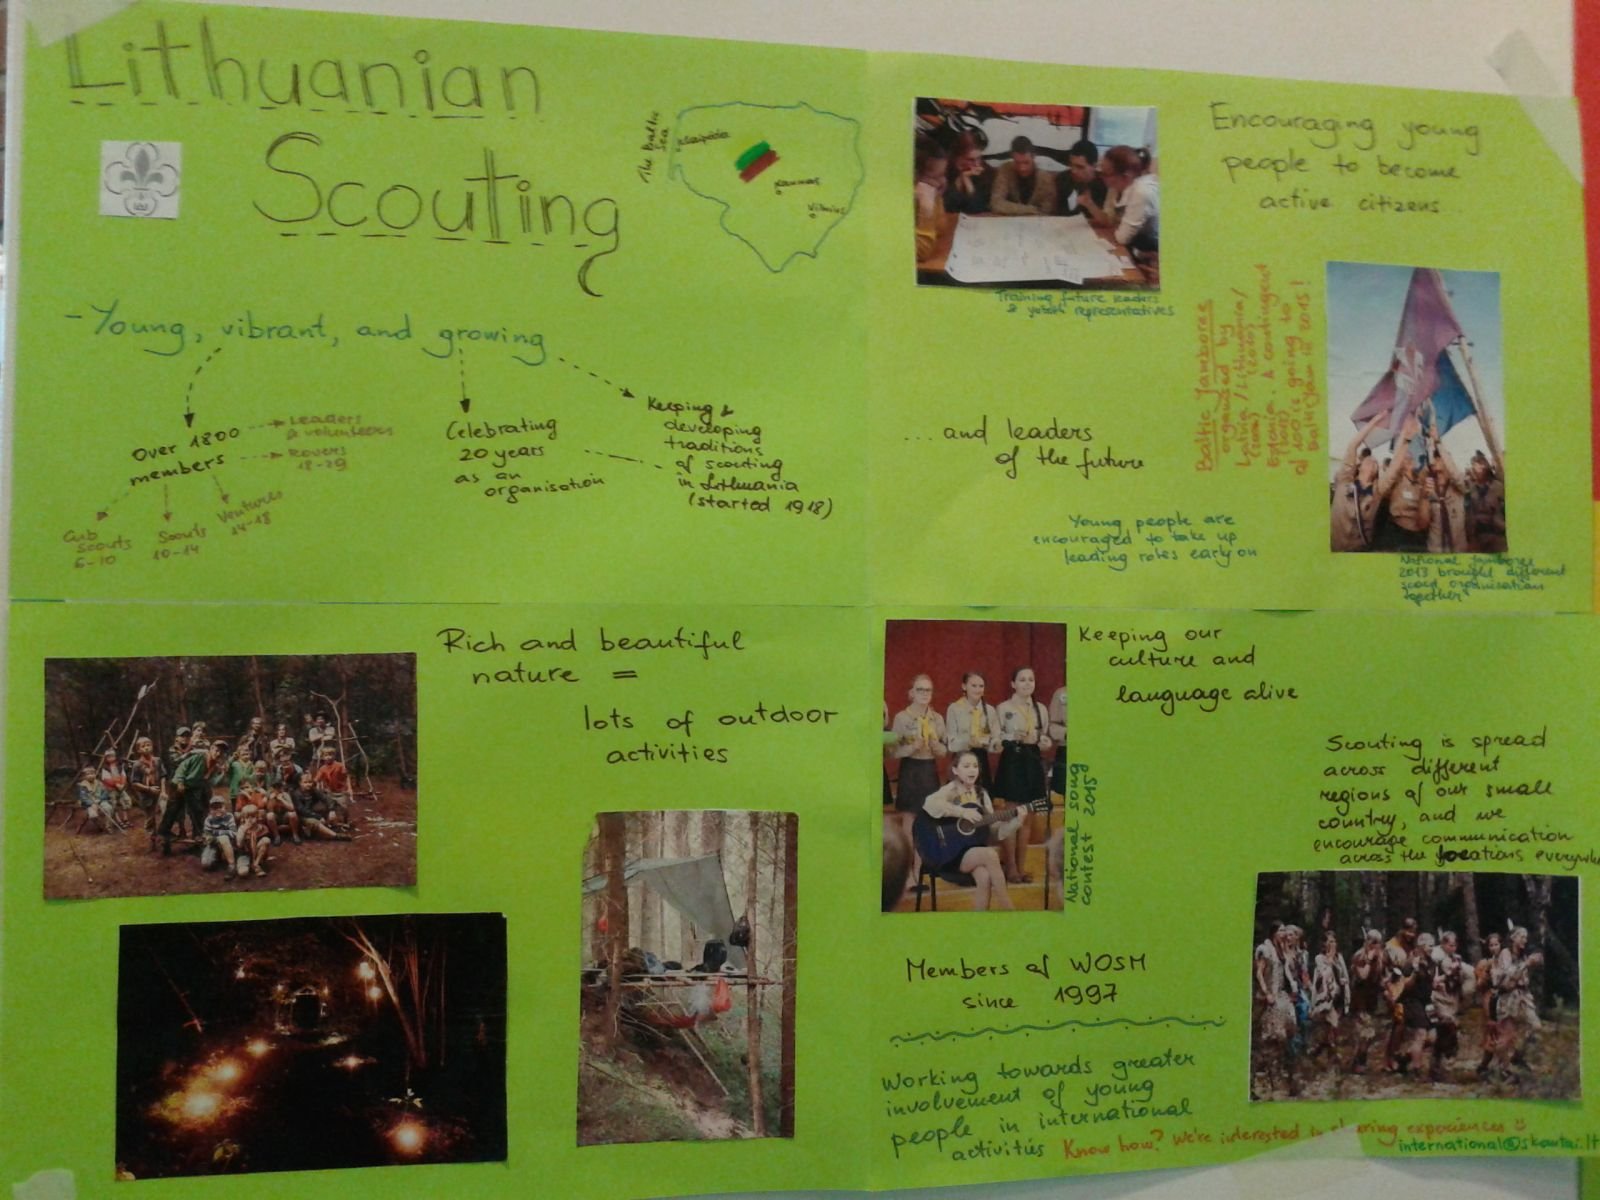 Lithuanian
Scouting
The Baltic
Sea
Klaipėda
Kaunas
Vilnius
- Young, vibrant, and growing
Over 1800
members
Leaders
& volunteers
Rovers
18-29
Ventures
14-18
Scouts
10-14
Cub
scouts
6-10
Celebrating
20 years
as an
organisation
Keeping &
developing
traditions
of scouting
in Lithuania
(started 1918)
Encouraging young
people to become
active citizens...
Training future leaders
& youth representatives
...and leaders
of the future
Young people are
encouraged to take up
leading roles early on
Baltic Jamborees
organized by
Latvia / Lithuania /
(2010)
Estonia. A contingent
of 100 is going to
in 2015!
National Jamboree
2013 brought different
scout organisations
together
Rich and beautiful
nature =
lots of outdoor
activities
Keeping our
culture and
language alive
National song
contest 2015
Scouting is spread
across different
regions of our small
country, and we
encourage communication
across the locations everywhe
Members of WOSM
since 1997
Working towards greater
involvement of young
people in international
activities
Know how? We're interested in sharing experiences
international@skautai.lt